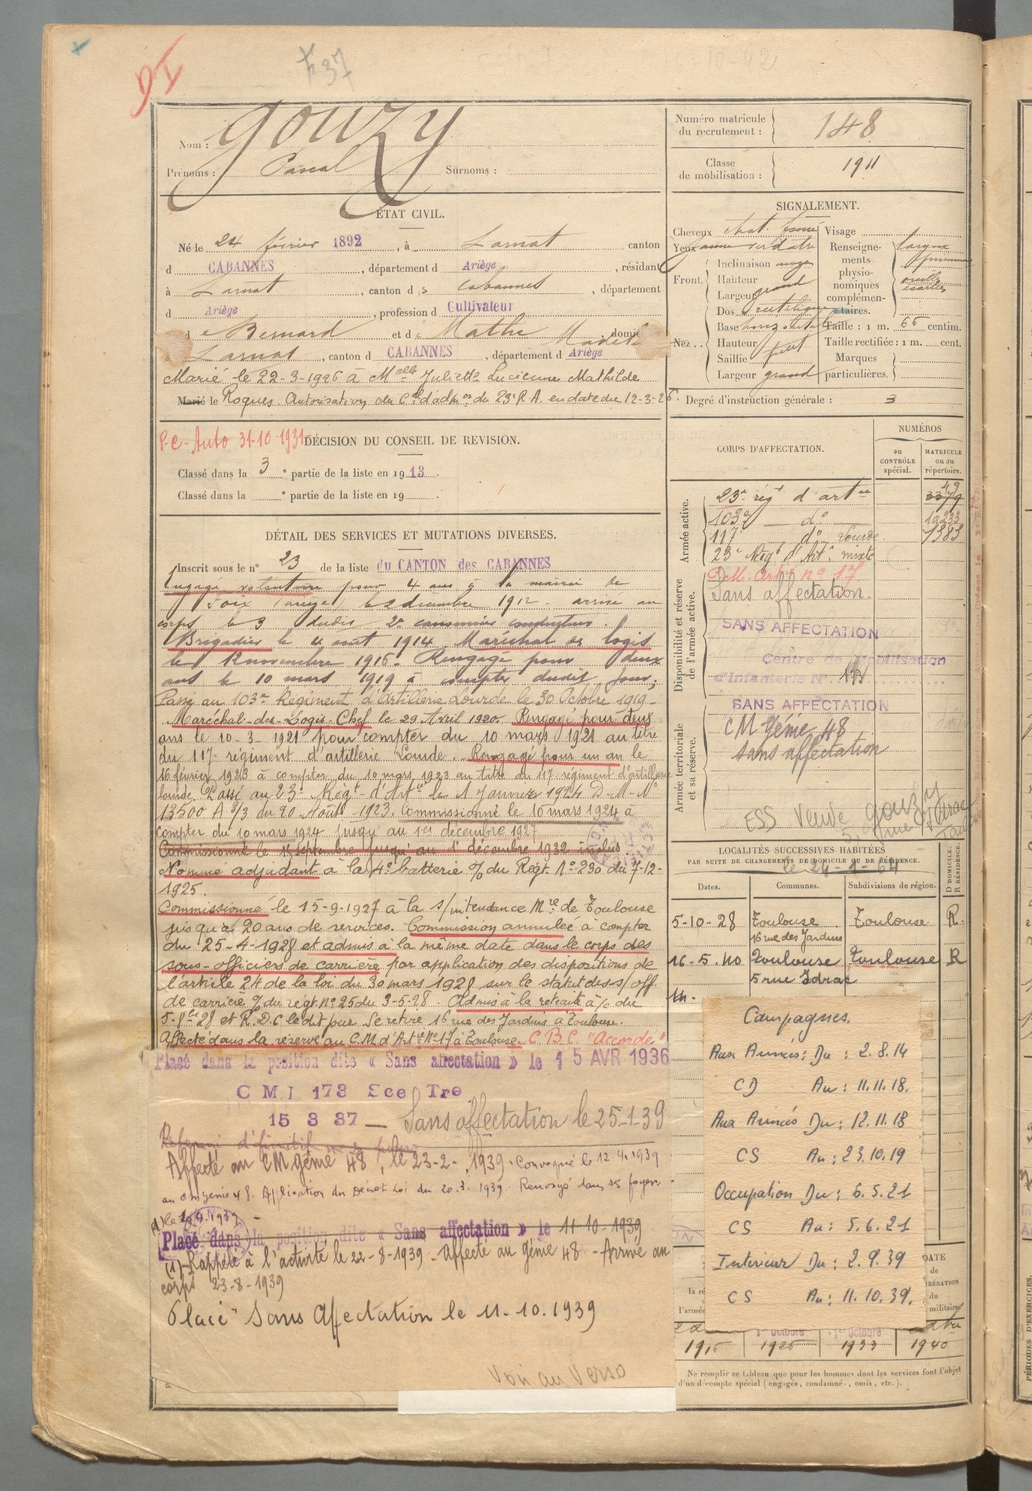 Gouzy
Nom :
Prénoms : Pascal Surnoms :
ÉTAT CIVIL.
Né le 24 février 1892, à Larnat canton
d CABANNES, département d Ariège, résidant
à Larnat, canton d es Cabannes, département
d Ariège, profession d Cultivateur
d e Bernard et d e Mathe domic
à Larnat, canton d CABANNES, département d Ariège
Marié le 22-3-1926 à Melle Juliette Lucienne Mathilde
Marié le Roques. Autorisation du Cel d'adm on du 23e R A. en date du 12-3-26.
P.C. Auto 31-10-1931 DÉCISION DU CONSEIL DE REVISION.
Classé dans la 3e partie de la liste en 1913.
Classé dans la e partie de la liste en 19 .
DÉTAIL DES SERVICES ET MUTATIONS DIVERSES.
Inscrit sous le n° 23 de la liste du CANTON des CABANNES
Engagé volontaire pour 4 ans à la mairie de
Foix Ariège le 2 décembre 1912 arrivé au
corps le 3 dudit 2e canonnier conducteur.
Brigadier le 4 août 1914 Maréchal des logis
le 1 novembre 1916. Rengagé pour deux
ans le 10 mars 1919 à compter dudit jour;
Passé au 103e Régiment d'Artillerie Lourde le 30 Octobre 1919.
Maréchal-des-Logis Chef le 29 Avril 1920. Rengagé pour deux
ans le 10-3-1921 pour compter du 10 mars 1921 au titre
du 117e régiment d'artillerie Lourde. Rengagé pour un an le
16 février 1923 à compter du 10 mars 1923 au titre du 117e régiment d'artillerie
lourde. Passé au 23e Régt d'Arte le 1 Janvier 1924 D.M. N°
13500 A 3/3 du 20 Août 1923. Commissionné le 10 mars 1924 à
compter du 10 mars 1924 jusqu'au 1er décembre 1927
Commissionné le 15 septembre jusqu'au 1er décembre 1932 inclus
Nommé adjudant à la 4e batterie o/ du Régt N° 230 du 7-12-
1925.
Commissionné le 15-9-1927 à la s/intendance Mre de Toulouse
jusqu'à 20 ans de services. Commission annulée à compter
du 25-4-1928 et admis à la même date dans le corps des
sous-officiers de carrière par application des dispositions de
l'article 24 de la loi du 30 mars 1928 sur le statut des s/off
de carrière o/ du régt N° 25 du 3-5-28. Admis à la retraite à/c du
5-8bre 28 et R.D.C le dit jour. Se retire 16 rue des Jardins à Toulouse.
Affecté dans la réserve au C.M. d'Arte N° 17 à Toulouse. C.B.C. "Accordé"
Placé dans la position dite « Sans affectation » le 15 AVR 1936
C M I 173 Sce Tre
15 3 37 — Sans affectation le 25-1-39
Affecté au CM génie 48, le 23-2-1939. Convoqué le 12.4.1939
au cm génie 48. Application du Décret Loi du 20.3.1939. Renvoyé dans ses foyers
Placé dans la position dite « Sans affectation » le 11-10-1939
(1) Rappelé à l'activité le 22-8-1939 - affecté au génie 48 - Arrivé au
corps 23-8-1939
Placé "Sans Affectation le 11-10-1939
Voir au Verso
Numéro matricule du recrutement : 148
Classe de mobilisation : 1911
SIGNALEMENT.
Cheveux chat. foncé Visage
Yeux jaune verdâtre Renseignements physionomiques complémentaires.
Front Inclinaison moyen
Hauteur grand
Largeur
Nez Dos rectiligne
Base horizontale Taille : 1 m. 66 centim.
Hauteur Taille rectifiée : 1 m. cent.
Saillie petit Marques
Largeur grand particulières.
Degré d'instruction générale : 3
CORPS D'AFFECTATION.
NUMÉROS
au CONTRÔLE spécial.
MATRICULE ou au répertoire.
Armée active.
23e rég d'artie
103e d°
117 d° lourde 1383
23e Régt d'Art. mixte
Disponibilité et réserve de l'armée active.
D.M. Artie n° 17
Sans affectation.
SANS AFFECTATION
Centre de Mobilisation
d'Infanterie N°
SANS AFFECTATION
Armée territoriale et sa réserve.
CM Génie 48
Sans affectation
ESS Veuve Gouzy
5, rue Idrac
LOCALITÉS SUCCESSIVES HABITÉES
PAR SUITE DE CHANGEMENTS DE DOMICILE OU DE RÉSIDENCE.
le 24-1-64
Dates. Communes. Subdivisions de région. D DOMICILE. R RÉSIDENCE.
5-10-28 Toulouse Toulouse R.
16 rue des Jardins
16-5-40 Toulouse Toulouse R
5 rue Idrac
Campagnes.
Aux Armées: Du : 2.8.14
CD Au : 11.11.18.
Aux Armées Du : 12.11.18
CS Au : 23.10.19
Occupation Du : 6.5.21
CS Au : 5.6.21
Intérieur Du : 2.9.39
CS Au : 11.10.39.
1er octobre
1915 1926 1933 1940
Ne remplir ce tableau que pour les hommes dont les services font l'objet
d'un décompte spécial (engagés, condamnés, omis, etc.).